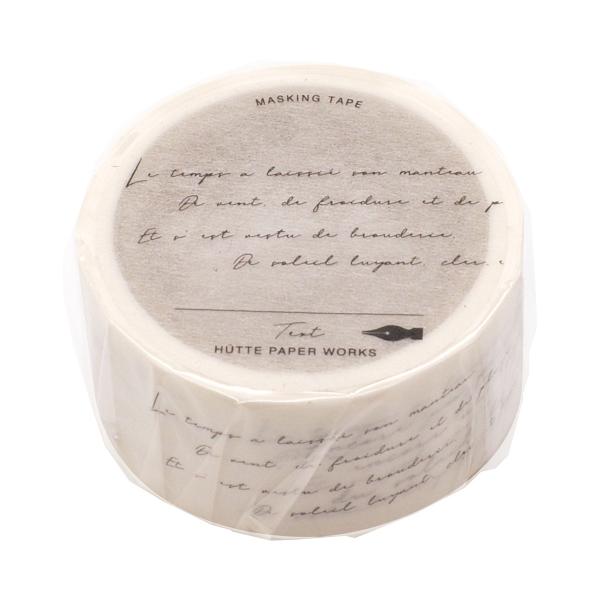 MASKING TAPE
Le temps a laissié son manteau
De vent, de froidure et de p
Et s'est vestu de brouderie,
De soleil luyant, cler, e
Text
HÜTTE PAPER WORKS
Le temps a laissié son manteau
De vent, de froidure et de pl
Et s'est vestu de brouderie,
De soleil luyant, cler